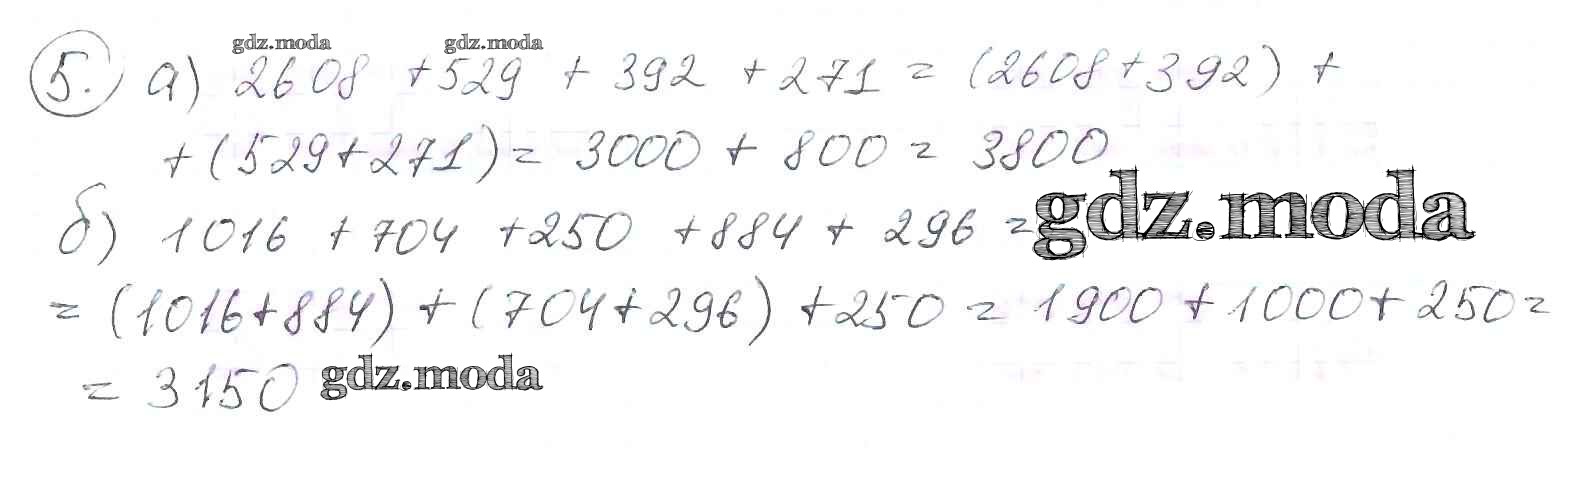 gdz.moda gdz.moda
5. а) 2608 + 529 + 392 + 271 = (2608 + 392) +
+ (529 + 271) = 3000 + 800 = 3800
б) 1016 + 704 + 250 + 884 + 296 = gdz.moda
= (1016 + 884) + (704 + 296) + 250 = 1900 + 1000 + 250 =
= 3150 gdz.moda